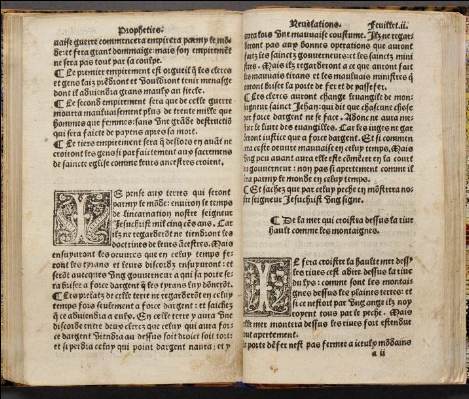 Propheties.
vaise guerre commencera empirera parmy le mõ-
de: et fera grant dommaige: mais son empiremẽt
ne sera pas tout par sa coulpe.
¶ Le premier empirement est orgueil q̃ les clercs
et gens laiz perdront et vouldront tenir mesnaige
dont il adviendra grans maulx au siecle.
¶ Le secõd empirement sera que de celle guerre
mourra mauvaisement plus de trente mille que
hommes que femmes: sans ung grãde destructiõ
qui sera faicte de payens apres sa mort.
¶ Le tiers empirement sera q̃ desloes en auãt ne
croitront les gens si parfaictement aux sacremens
de saincte eglise comme leurs ancestres croient.
IL pense aux terres qui seront
parmy le mõde: environ se temps
de lincarnation nostre seigneur
Jesuchrist mil cinq cẽs ans. Car
ilz ne regarderõt ne tiendront les
doctrines de leurs ãcestres. Mais
ensuyvront les oeuvres que en celuy temps fe-
ront les tyrans et leurs discordz ensuyvront: et
serõt avecques ung gouverneur a qui sa porte se-
ra brisee a force dargent q̃ les tyrans luy dõnerõt.
¶ Les prelatz de celle terre ne regarderõt en celuy
temps fors seulement a force dargent: et saichez
q̃ ce adviendra a eulx. En celle terre y aura une
discorde entre deux clercz que celuy qui aura for-
ce dargent viendra au dessus soit droit soit tort:
et si perdra celuy qui point dargent naura: et y
Revelations. Feuillet.ii.
aura lois une mauvaise coustume. Ilz ne regar-
deront pas aux bonnes operations que auront
faitz les sainctz gouverneurs et les sainctz minis
tres. Mais ilz regarderont a ce que auront fait
les mauvais tirans et les maulvais ministres q̃
mont briser la porte de fer et de passe fer.
¶ Les clercs auront change levangile de mon-
seigneur sainct Jehan: qui dit que chascune chose
par force dargent ne se face. Adonc ne aura me-
stier le livre des evangilles. Car les iuges ne gar
deront iustice que a force dargent. Et si commen-
cera ceste oeuvre mauvaise en celuy temps. Mais
ung peu avant aura elle este cõmẽcee en la court
du gouverneur: non pas si apertement comme il
sera parmy le monde en celuy temps.
¶ Et sachez que par celuy pechie en mõstrera no-
stre seigneur Jesuchrist ung signe.
¶ De la mer qui croistra dessus la rive
hault comme les montaignes.
IL fera croistre la haulte mer dessꝰ
les rives cest adire dessus la rive
du pas: comme sont les montai-
gnes dessus les plaines terres: et
se ne fust par ung ange ilz noy-
royent tous par le peche. Mais
celle mer montera dessus les rives fort estendue
tout apertement.
La porte de fer nest pas fermee a iceluy mõdains
a ii